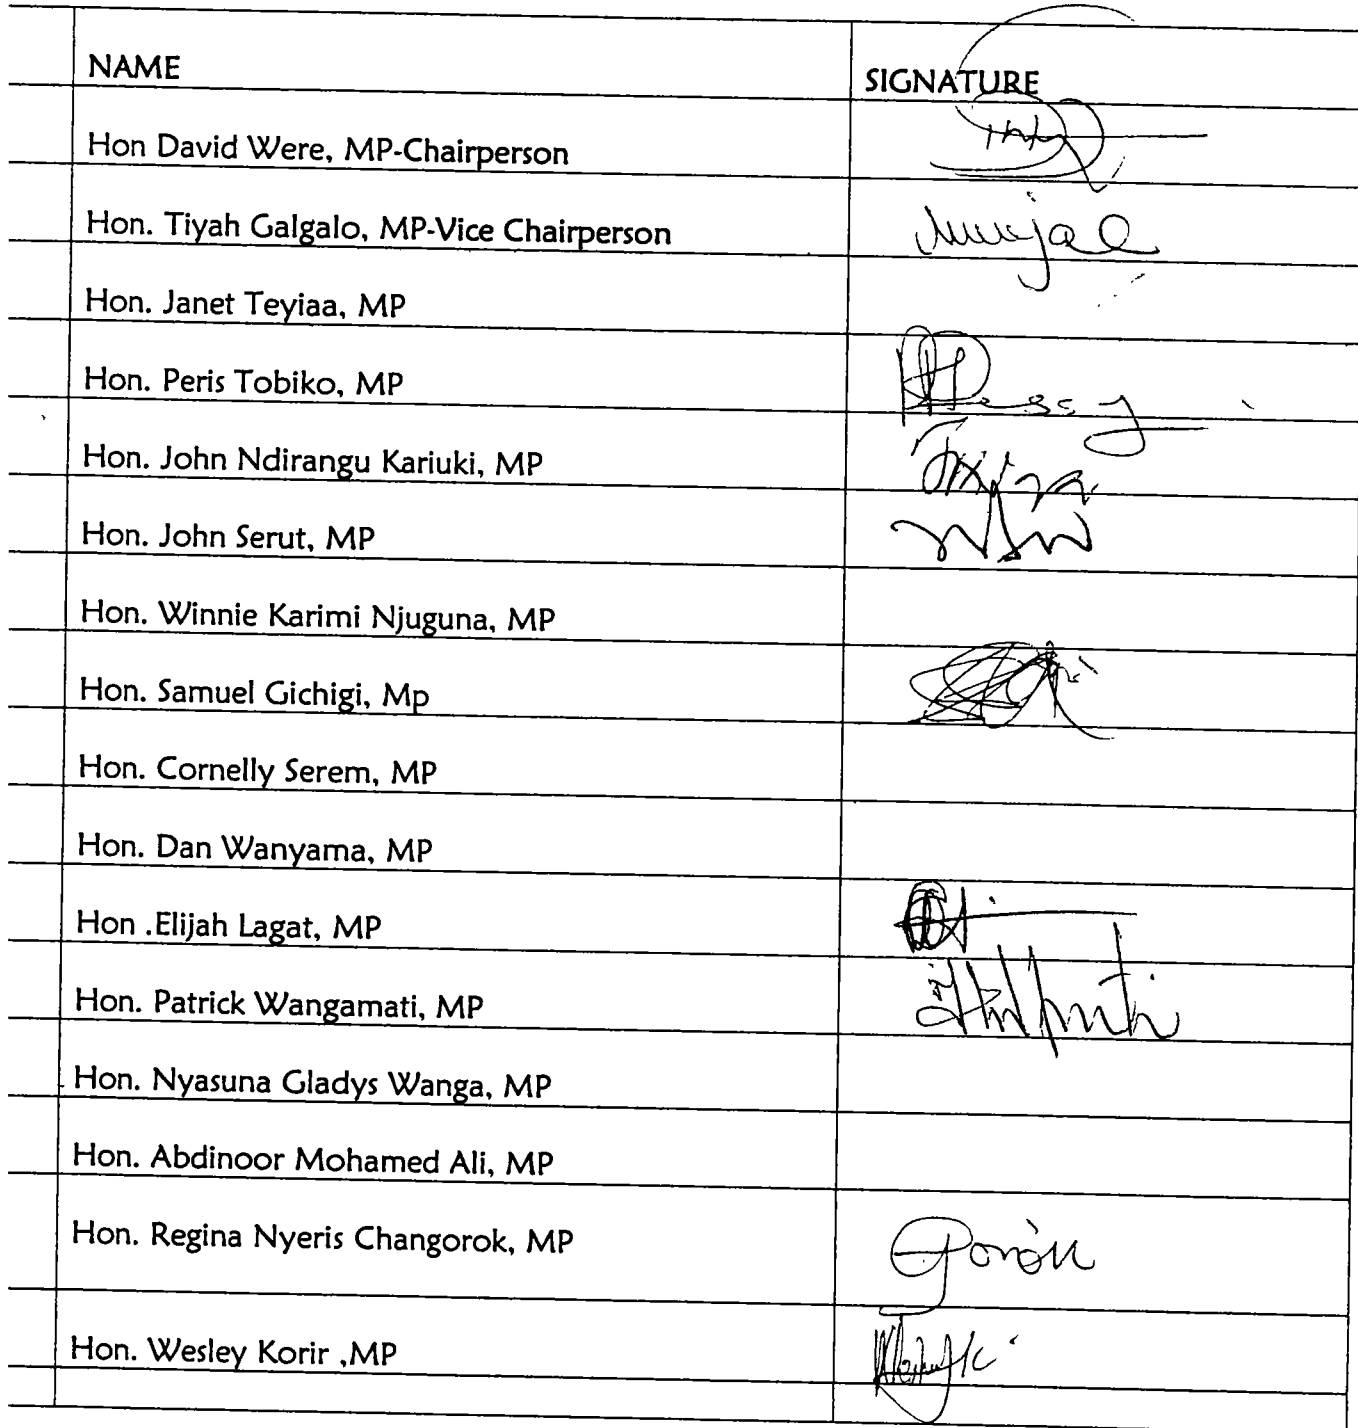 NAME SIGNATURE
Hon David Were, MP-Chairperson
Hon. Tiyah Galgalo, MP-Vice Chairperson
Hon. Janet Teyiaa, MP
Hon. Peris Tobiko, MP
Hon. John Ndirangu Kariuki, MP
Hon. John Serut, MP
Hon. Winnie Karimi Njuguna, MP
Hon. Samuel Gichigi, Mp
Hon. Cornelly Serem, MP
Hon. Dan Wanyama, MP
Hon .Elijah Lagat, MP
Hon. Patrick Wangamati, MP
Hon. Nyasuna Gladys Wanga, MP
Hon. Abdinoor Mohamed Ali, MP
Hon. Regina Nyeris Changorok, MP
Hon. Wesley Korir ,MP